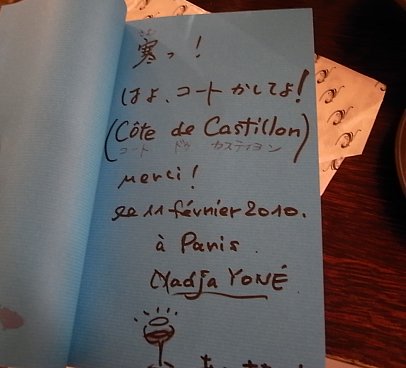 さむ
寒っ!
はよ、コートかしてよ!
(Côte de Castillon)
コート ドゥ カスティヨン
merci!
le 11 février 2010.
à Paris
Nadja YONÉ